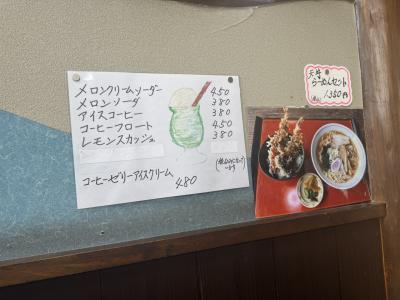 メロンクリームソーダー 450
メロンソーダ 380
アイスコーヒー 380
コーヒーフロート 450
レモンスカッシュ 380
コーヒーゼリーアイスクリーム 480
天丼
らーめんセット
(税込) 1,380円